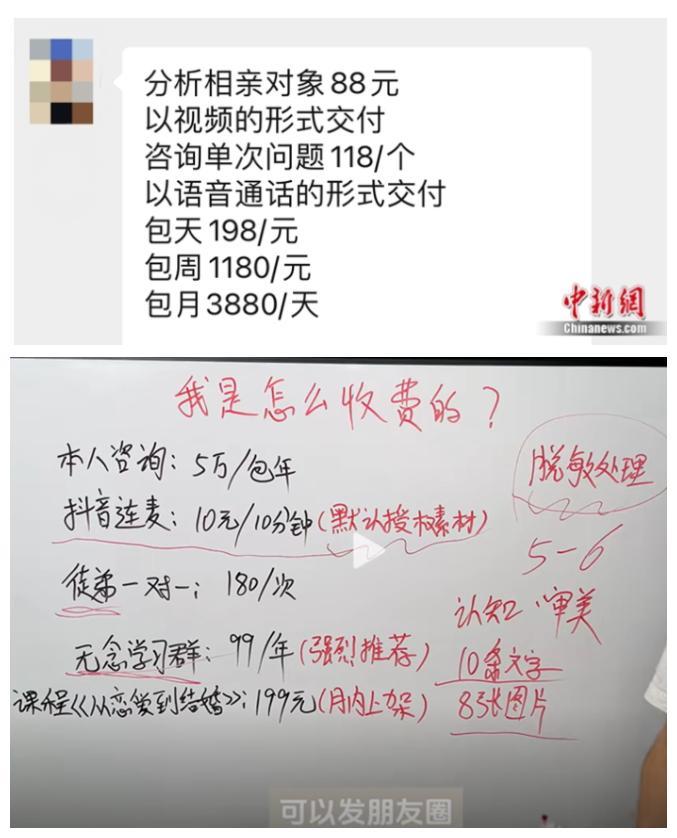 分析相亲对象88元
以视频的形式交付
咨询单次问题118/个
以语音通话的形式交付
包天198/元
包周1180/元
包月3880/天
中新網
Chinanews.com
我是怎么收费的？
本人咨询：5万/包年
抖音连麦：10元/10分钟(默认授权素材)
徒弟一对一：180/次
无念学习群：99/年(强烈推荐)
课程《从恋爱到结婚》：199元(月内上架)
脱敏处理
5-6
认知·审美
10条文字
8张图片
可以发朋友圈